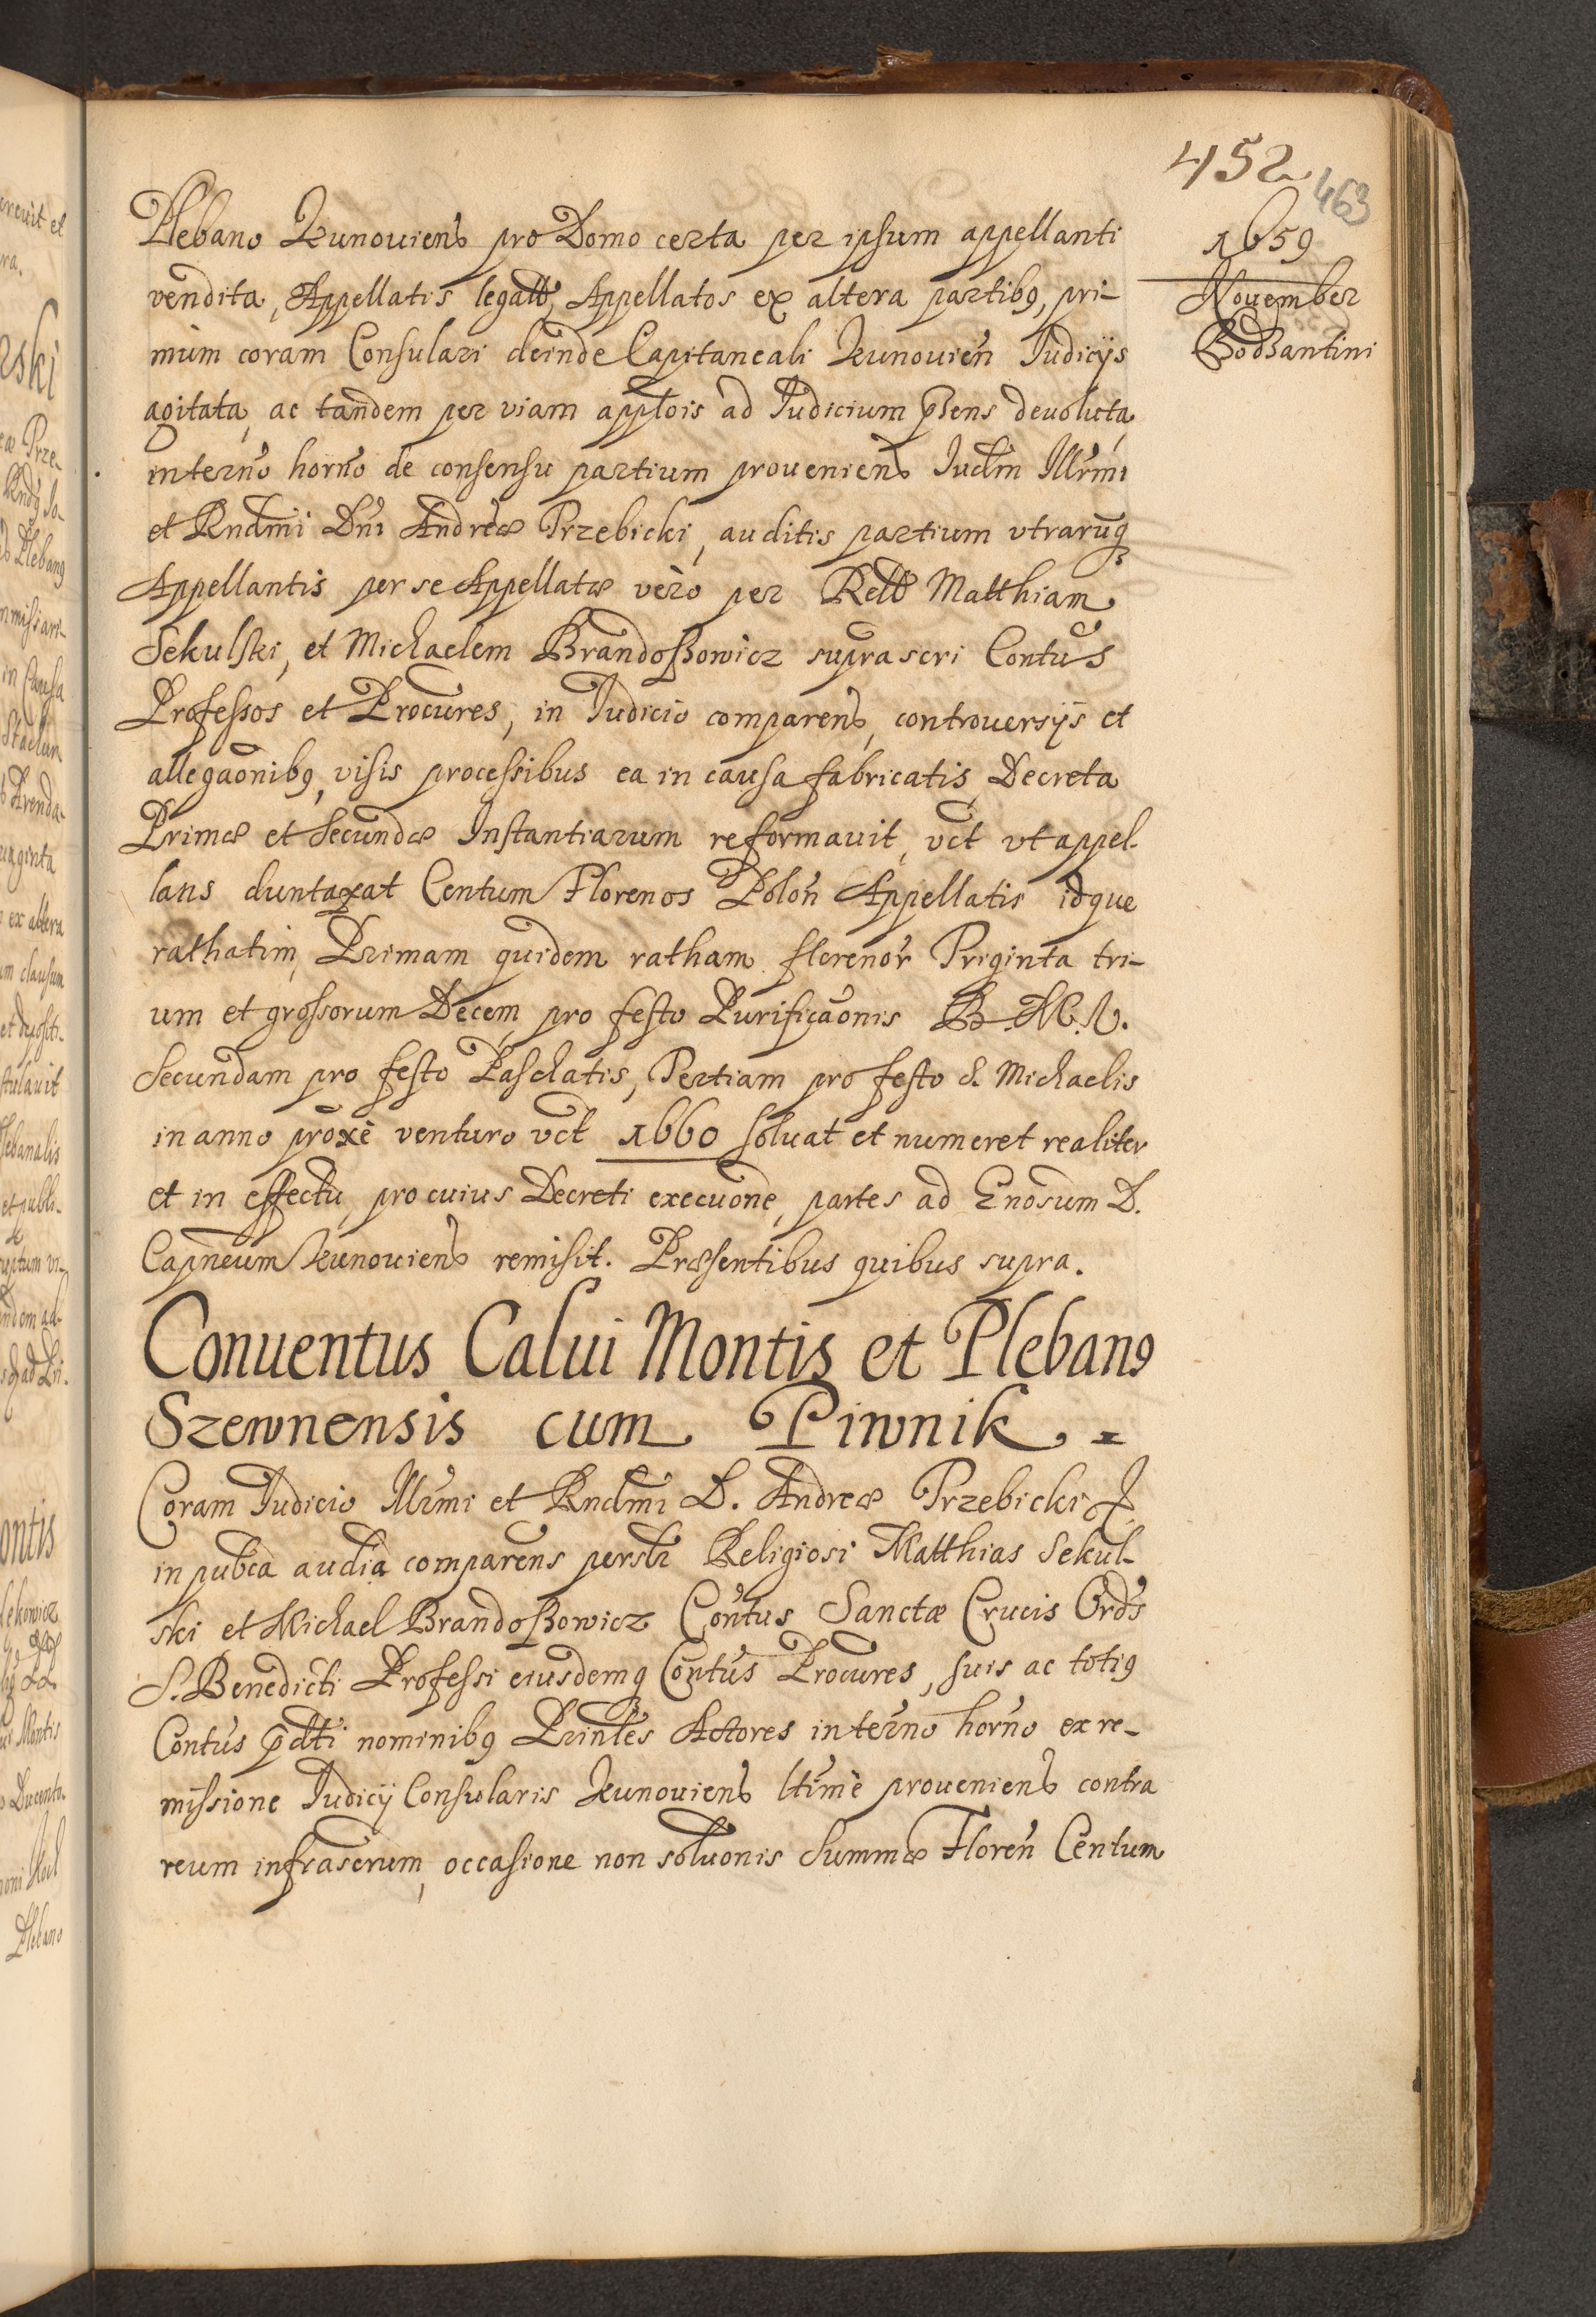 452
463
1659
November
Bodzantini
Plebano Kunouiens pro Domo certa per ipsum appellanti
vendita, Appellatis legatt, Appellatos ex altera partibq, pri-
mum coram Consulari deinde Capitaneali Kunouien̄ Iudicijs
agitata, ac tandem per viam applōis ad Iudicium p̄sens deuoluta,
intern̄o horn̄o de consensu partium proueniens Iudm Illr̄mi
et Rndm̄i Dn̄i Andreæ Przebicki, auditis partium vtrarūq
Appellantis per se Appellatæ vero per Rellō Matthiam
Sekulski, et Michaelem Brandoßowicz suprascri Contūs
Professos et Procures, in Iudicio comparens, controuersijs et
allegāonibq, visis processibus ea in causa fabricatis, Decreta
Primæ et Secundæ Instantiarum reformauit, vct vt appel-
lans duntaxat Centum Florenos Polon̄ Appellatis idque
rathatim, Primam quidem ratham florenor̄ Triginta tri-
um et grossorum Decem, pro festo Purificāonis B. M. V.
Secundam pro festo Paschatis, Tertiam pro festo S. Michaelis
in anno prox̄e venturo vct 1660 soluat et numeret realiter
et in effectu, pro cuius Decreti execuōne, partes ad Enosum D.
Capn̄eum Kunouiens remisit. Præsentibus quibus supra.
Conuentus Calui Montis et Plebanq
Szewnensis cum Piwnik.
Coram Iudicio Illr̄mi et Rndm̄i D. Andreæ Przebicki J.
in pubca audīa comparens persłr Religiosi Matthias Sekul-
ski et Michael Brandoßowicz Contūs Sanctæ Crucis Ord̄s
S. Benedicti Professi eiusdemq Contūs Procures, suis ac totiq
Contūs p̄dti nominibq Prinłes Actores intern̄o horn̄o ex re-
missione Iudicij Consularis Kunouiens ltim̄e proueniens contra
reum infrascrum, occasione non soluōnis Summæ Floren̄ Centum